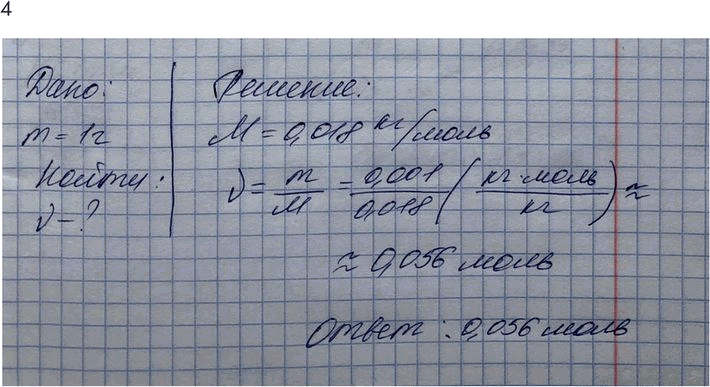 4
Дано:
m = 1г
Найти:
ν - ?
Решение:
M = 0,018 кг/моль
ν = m/M = 0,001/0,018 (кг·моль/кг) ≈
≈ 0,056 моль
Ответ: 0,056 моль